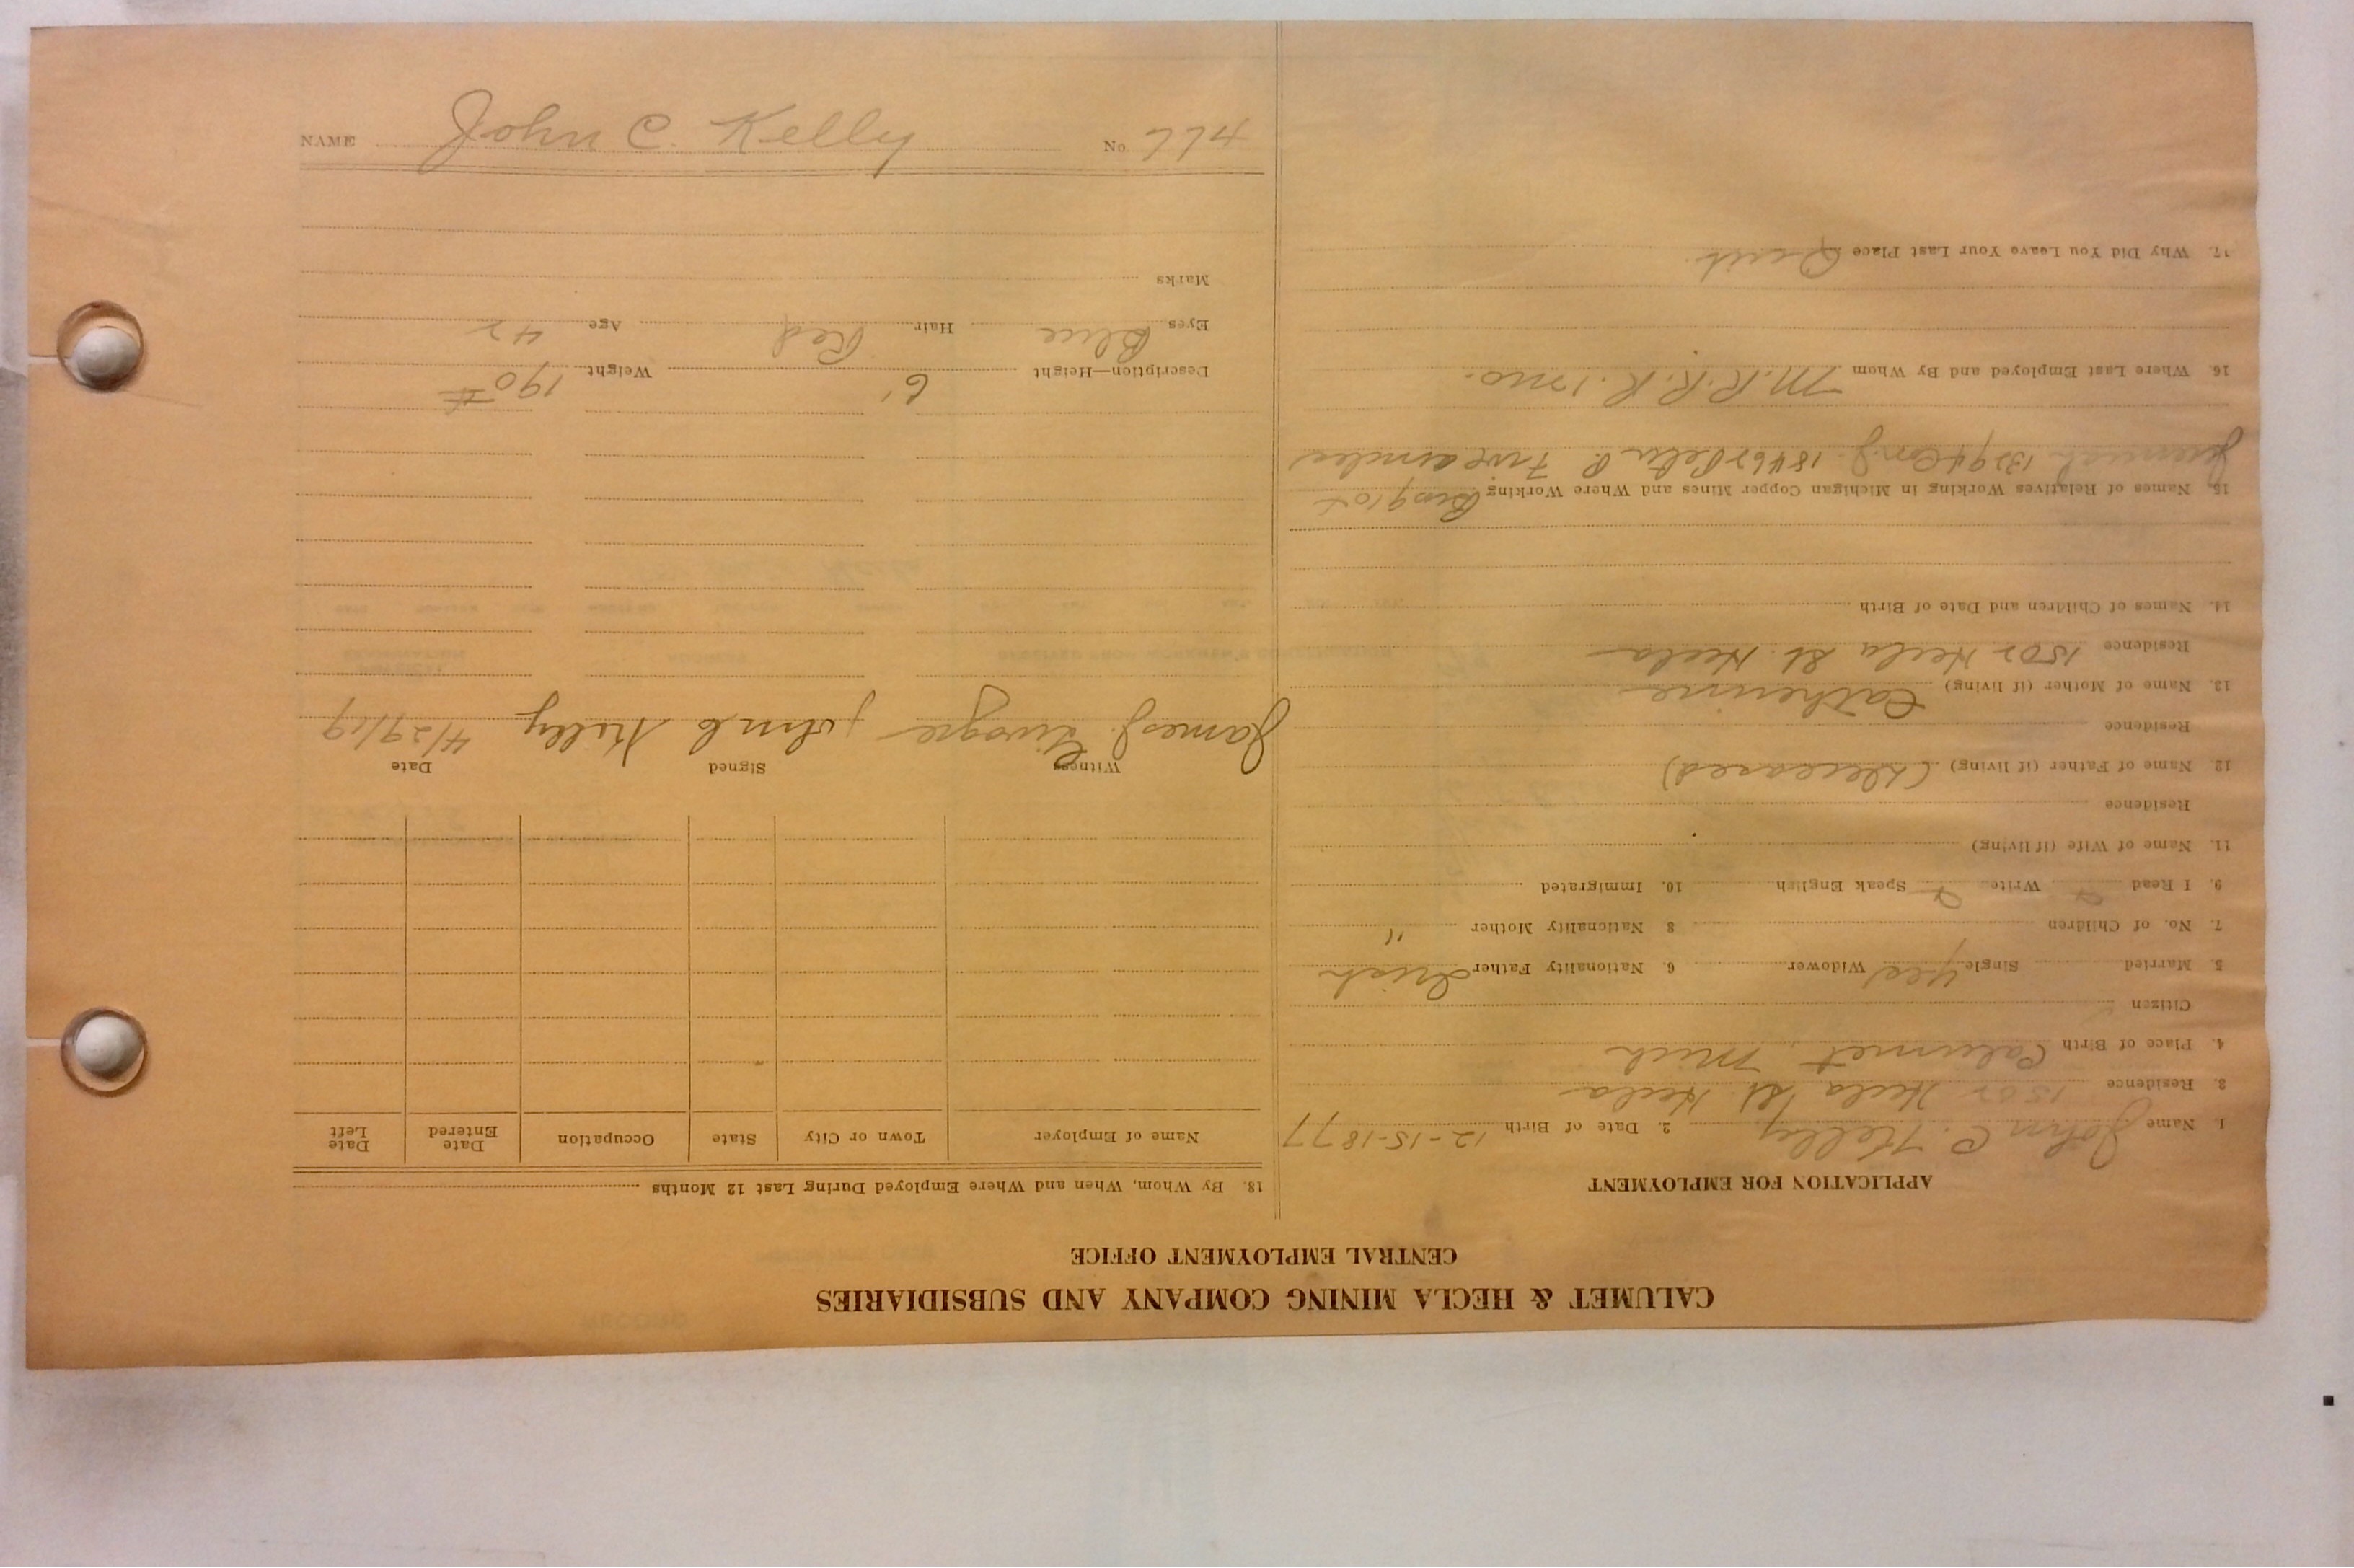 NAME John C. Kelly No.
CALUMET & HECLA MINING COMPANY AND SUBSIDIARIES
CENTRAL EMPLOYMENT OFFICE
APPLICATION FOR EMPLOYMENT
1. Name John C. Kelly 2. Date of Birth 12-15-1877
3. Residence 1502 Hecla St. Hecla
4. Place of Birth Calumet, Mich
Citizen
5. Married Single yes Widower 6. Nationality Father Irish
7. No. of Children 8 Nationality Mother "
9. I Read Write Speak English 10. Immigrated
11. Name of Wife (if living)
Residence
12. Name of Father (if living) (Deceased)
Residence
13. Name of Mother (if living) Catherine
Residence 1502 Hecla St. Hecla
14. Names of Children and Date of Birth
15. Names of Relatives Working in Michigan Copper Mines and Where Working Bros
Jeremiah
16. Where Last Employed and By Whom M.R.R.R. 1 mo.
17. Why Did You Leave Your Last Place Quit.
18. By Whom, When and Where Employed During Last 12 Months
Name of Employer Town or City State Occupation Date Entered Date Left
Witness Signed Date
James J. John C Kelly 4/29/19
Description—Height 6' Weight 190 #
Eyes Blue Hair Red Age 42
Marks